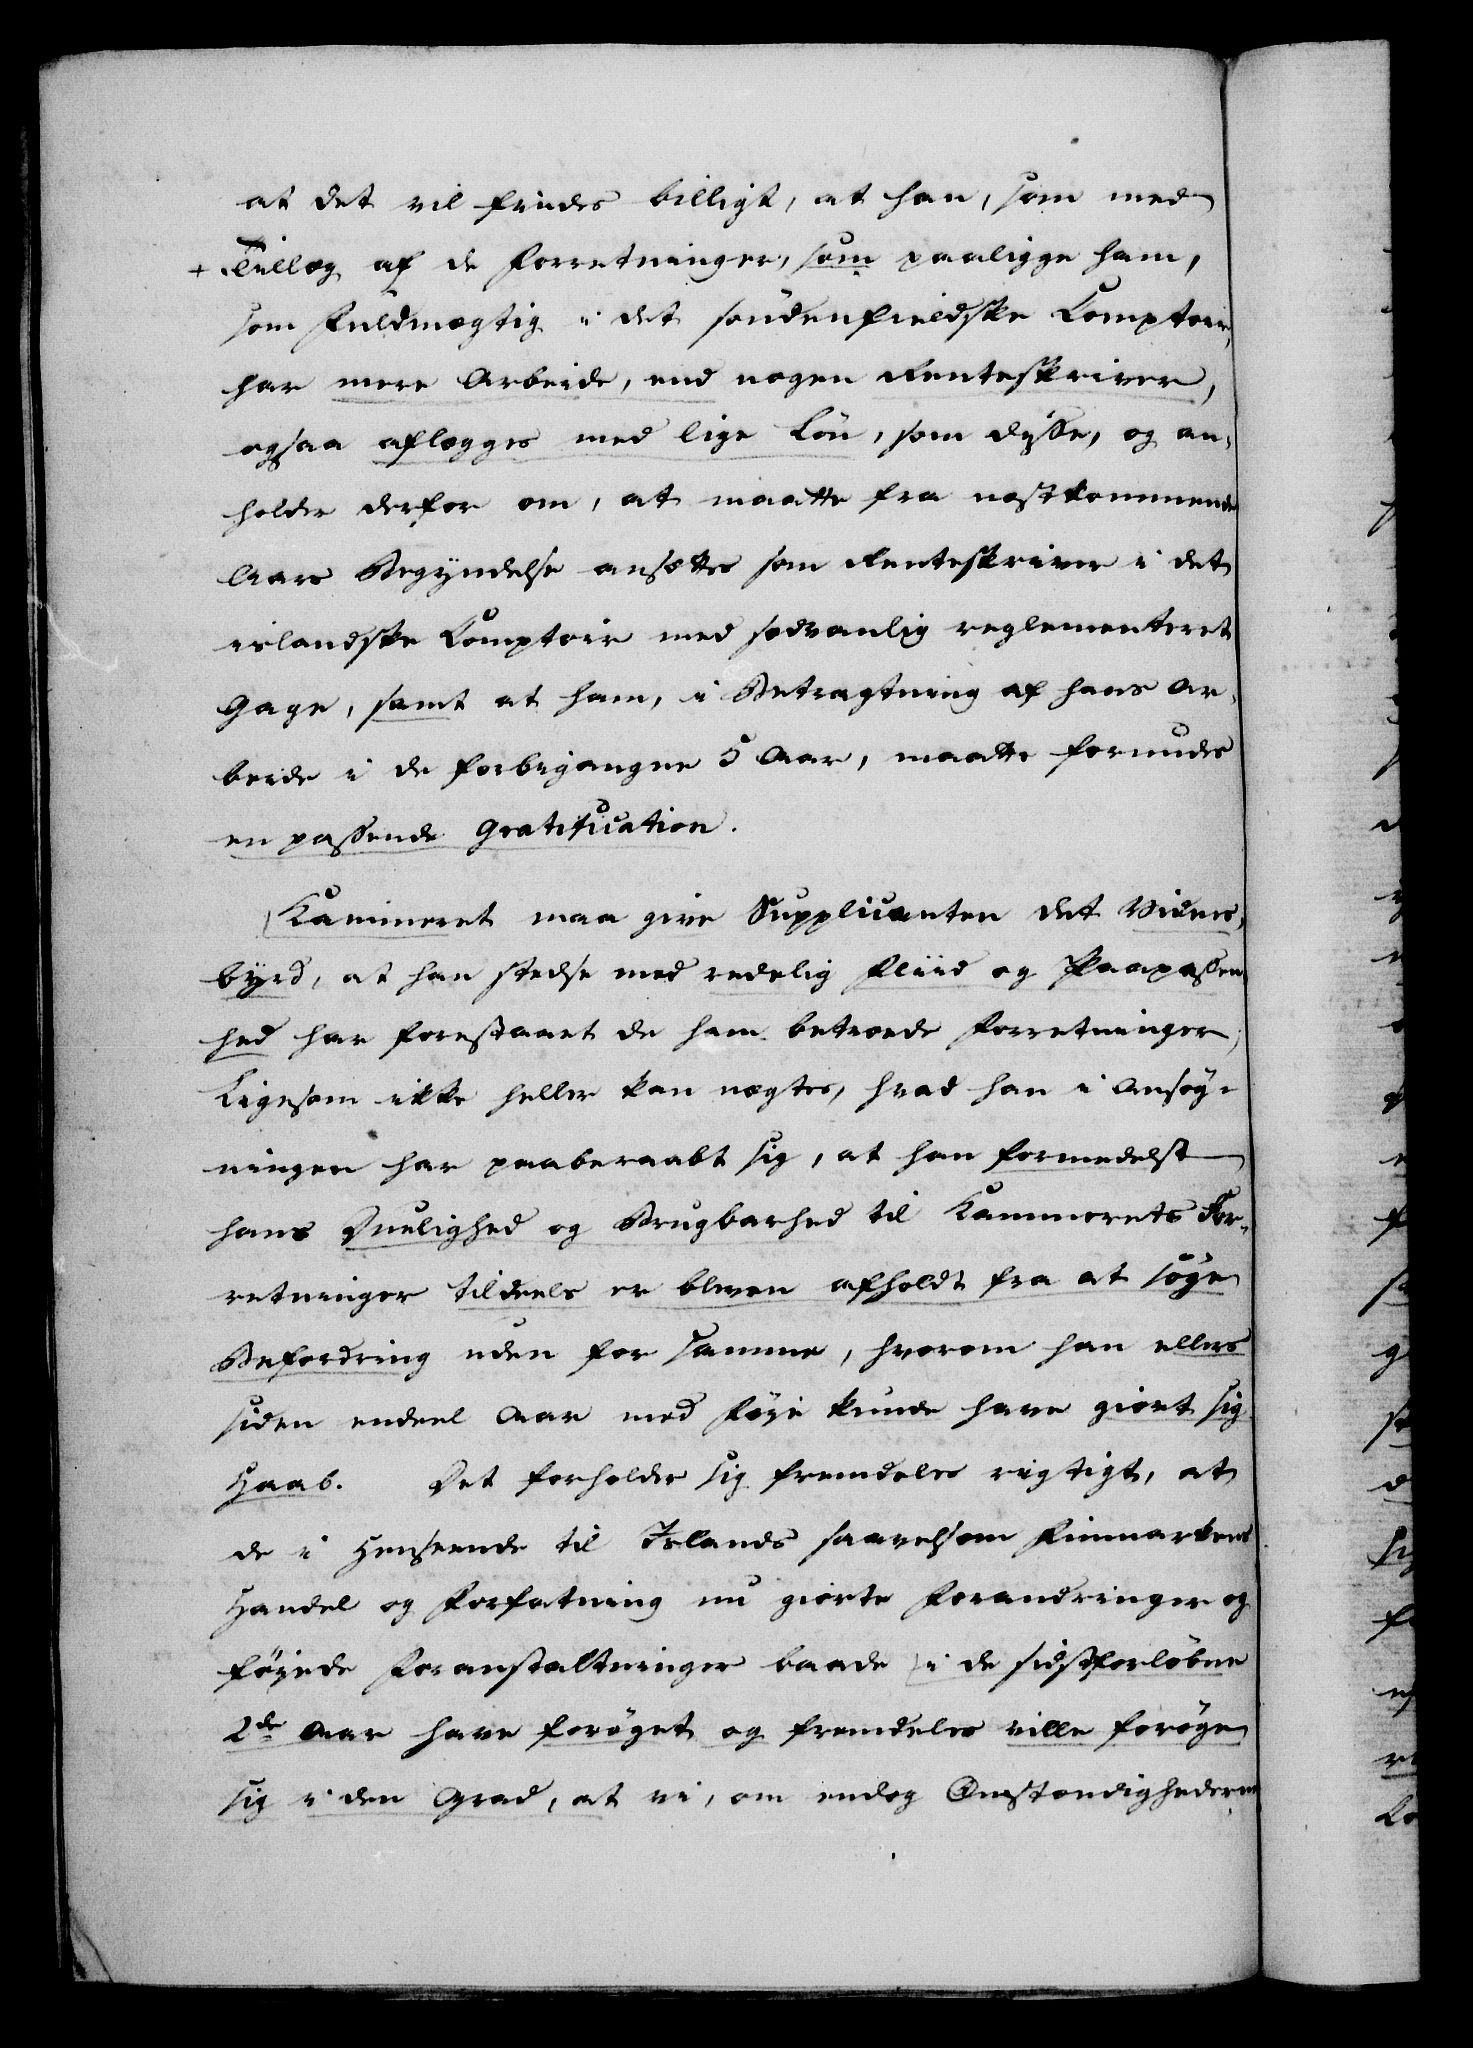 at det vil findes billigt, at han, som med
+ Tillæg af de Forretninger, som paaligge ham,
som Fuldmægtig i det søndenfieldske Comptoir,
har mere Arbeide, end nogen Renteskriver,
ogsaa aflægges med lige Løn, som disse, og an-
holder derfor om, at maatte fra næstkommende
Aars Begyndelse ansættes som Renteskriver i det
islandske Comptoir med sædvanlig reglementeret
Gage, samt at ham, i Betragtning af hans Ar-
beide i de forbigangne 5 Aar, maatte forundes
en passende Gratification.
Kammeret maa give Supplicanten det Vidnes-
byrd, at han stedse med redelig Fliid og Paapassen-
hed har forestaaet de ham betroede Forretninger,
Ligesom ikke heller kan nægtes, hvad han i Ansøg-
ningen har paaberaabt sig, at han formedelst
hans Duelighed og Brugbarhed til Kammerets For-
retninger tildeels er bleven afholdt fra at søge
Befordring uden for samme, hvorom han ellers
siden endeel Aar med Føje kunde have giort sig
Haab. Det forholder sig fremdeles rigtigt, at
de i Henseende til Islands saavelsom Finmarkens
Handel og Forfatning nu giorte Forandringer og
føjede Foranstaltninger baade i de sidstforløbne
2de Aar have forøget og fremdeles ville forøge
sig i den Grad, at vi, om endog Omstændighederne